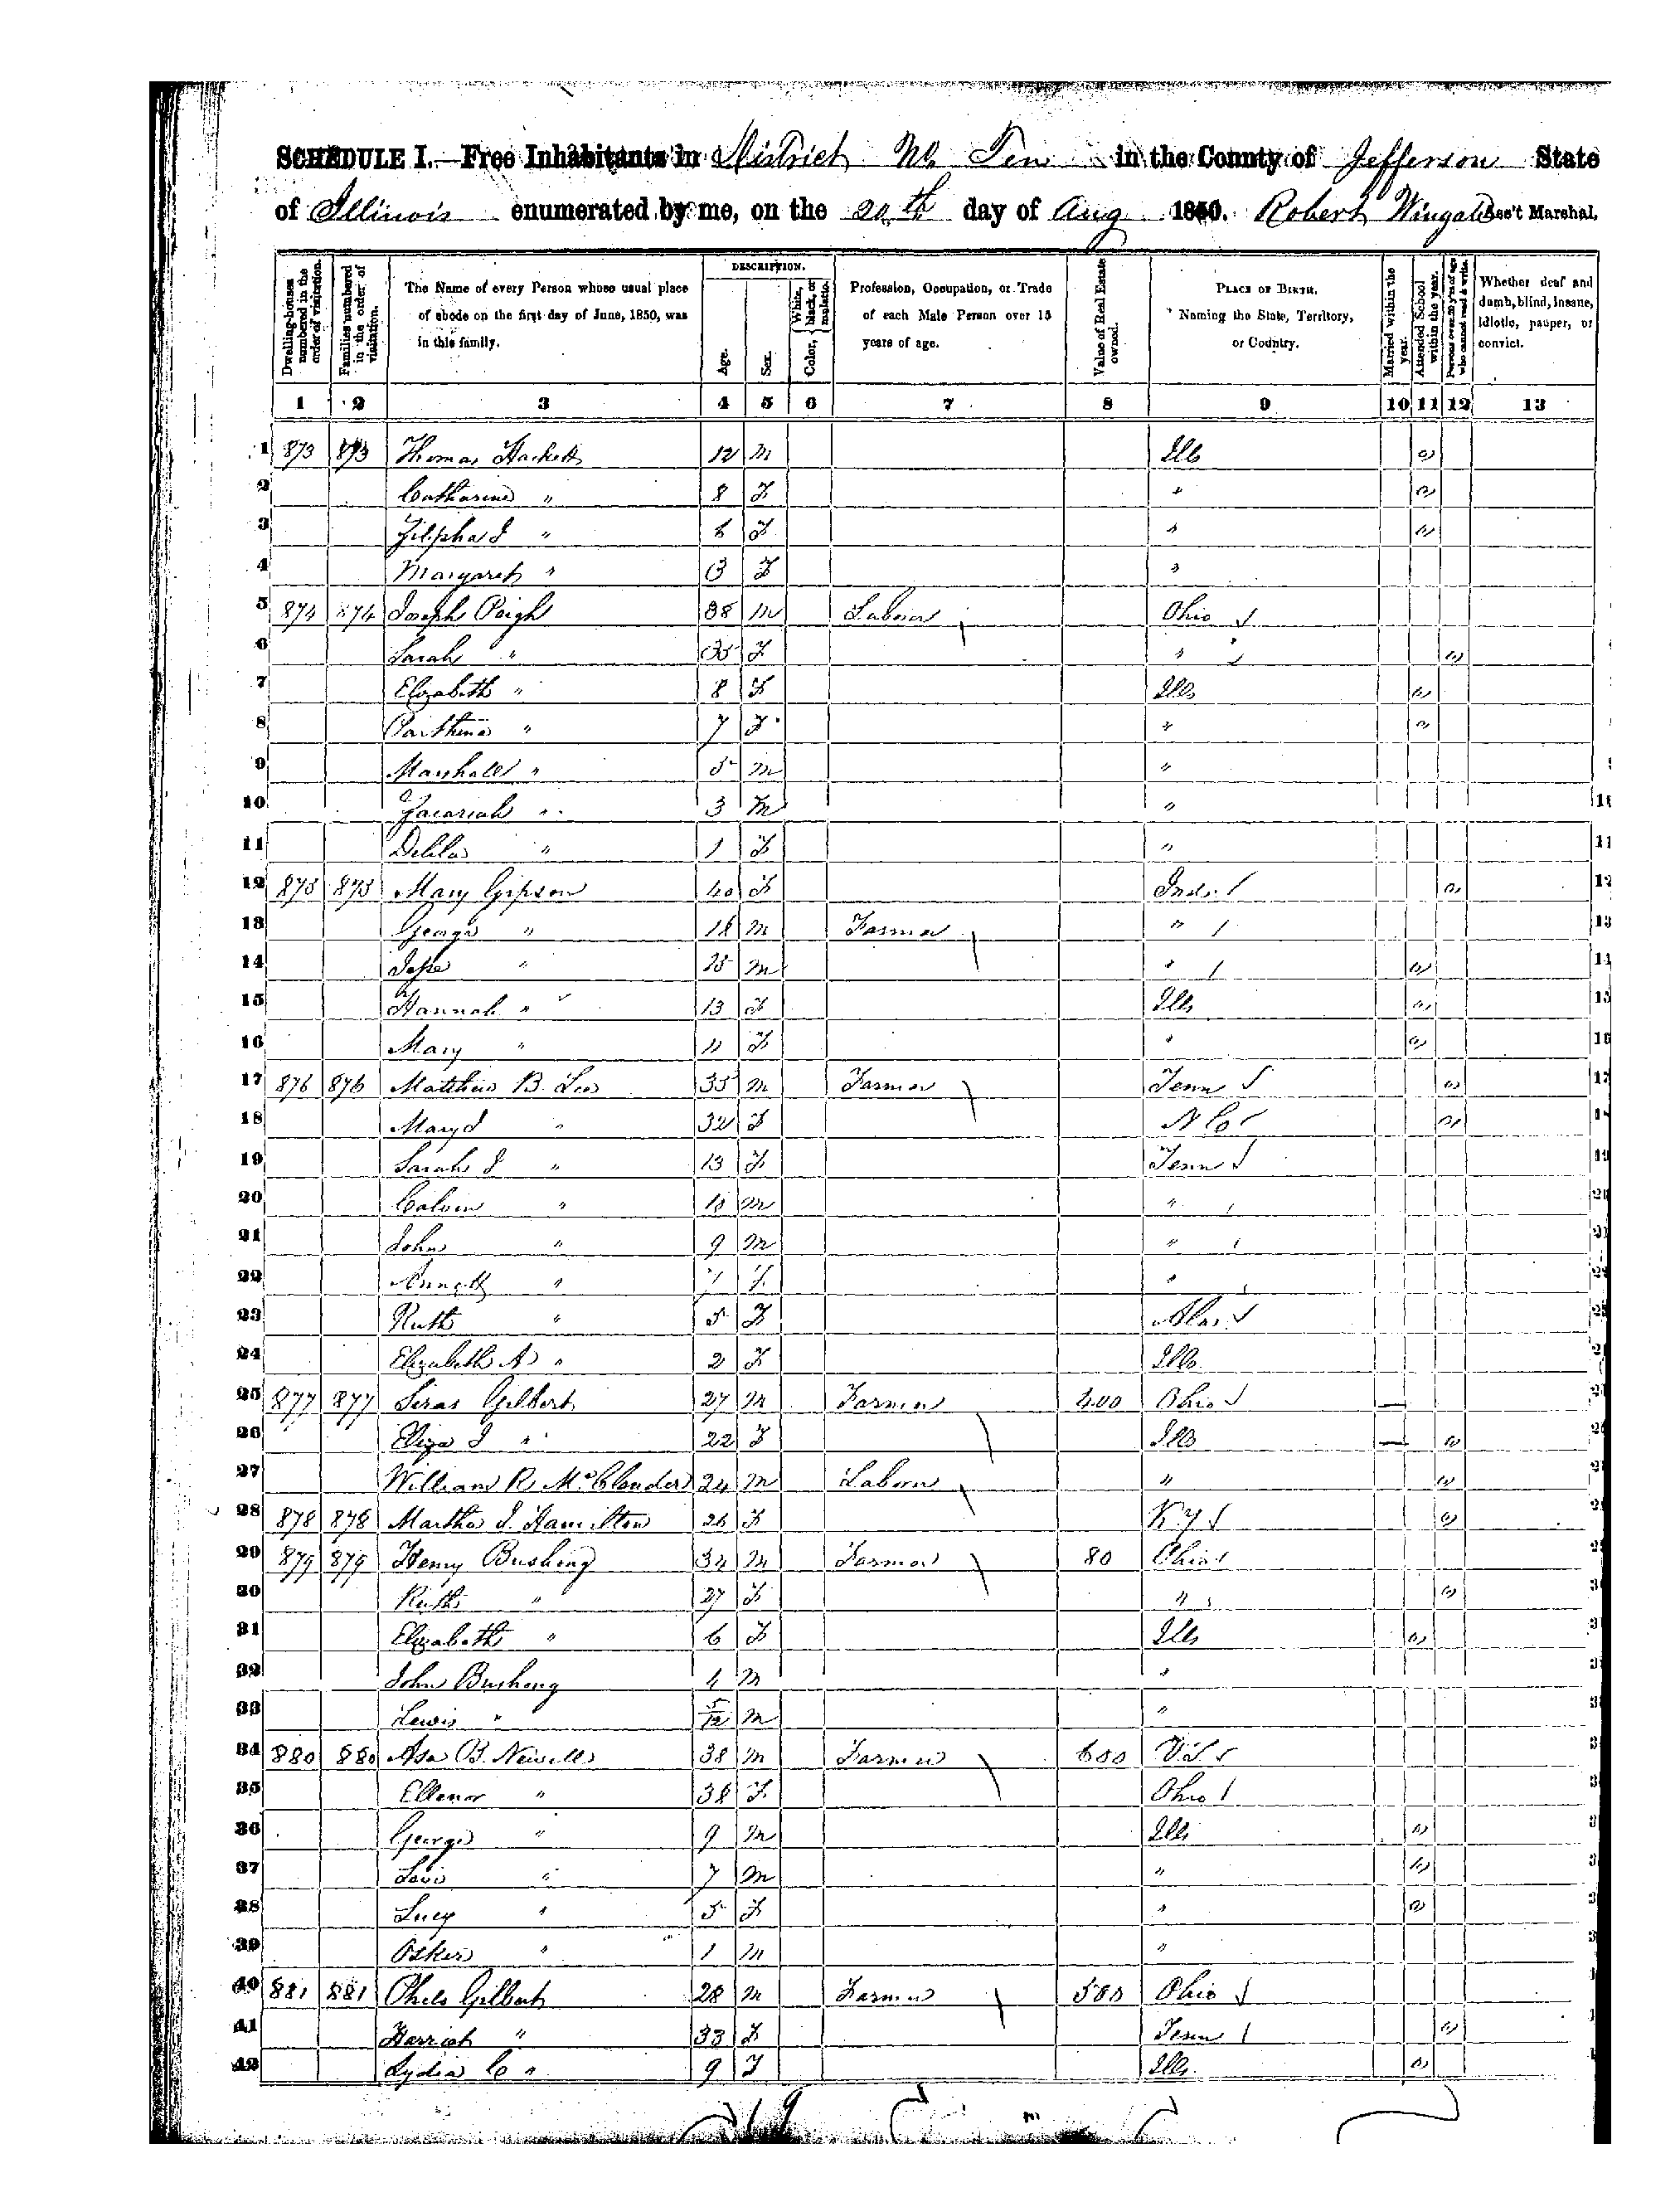 SCHEDULE I.—Free Inhabitants in District No Ten in the County of Jefferson State
of Illinois enumerated by me, on the 20th day of Aug 1850. Robert Wingate Ass't Marshal.
Dwelling-houses numbered in the order of visitation.
Families numbered in the order of visitation.
The Name of every Person whose usual place of abode on the first day of June, 1850, was in this family.
DESCRIPTION.
Age.
Sex.
Color, White, black, or mulatto.
Profession, Occupation, or Trade of each Male Person over 15 years of age.
Value of Real Estate owned.
PLACE OF BIRTH. Naming the State, Territory, or Country.
Married within the year.
Attended School within the year.
Persons over 20 y'rs of age who cannot read & write.
Whether deaf and dumb, blind, insane, idiotic, pauper, or convict.
1 2 3 4 5 6 7 8 9 10 11 12 13
1 873 873 Thomas Hackett 12 M Ills
2 Catharine " 8 F "
3 Zilpha J " 6 F "
4 Margaret " 3 F "
5 874 874 Joseph Paigh 38 M Laborer Ohio
6 Sarah " 35 F "
7 Elizabeth " 8 F Ills
8 Parthena " 7 F "
9 Marshall " 5 M "
10 Zacariah " 3 M "
11 Delila " 1 F "
12 875 875 Mary Gipson 40 F Inda
13 George " 18 M Farmer "
14 Jesse " 15 M "
15 Hannah " 13 F Ills
16 Mary " 11 F "
17 876 876 Matthew B. Lee 35 M Farmer Tenn
18 Mary J " 32 F N C
19 Sarah J " 13 F Tenn
20 Calvin " M "
21 John " 9 M "
22 " 7 F "
23 Ruth " 5 F Ala
24 Elizabeth A " 2 F Ills
25 877 877 Gilbert 27 M Farmer 400 Ohio
26 Eliza J " 22 F Ills
27 William R. 24 M Laborer "
28 878 878 Martha J. Hamilton 26 F K.Y
29 879 879 Henry Bushong 34 M Farmer 80 Ohio
30 Ruth " 27 F "
31 Elizabeth " 6 F Ills
32 John Bushong 4 M "
33 Lewis " 5/12 M "
34 880 880 Asa B. Newell 38 M Farmer 600
35 Ellenor " 38 F Ohio
36 George " 9 M Ills
37 " 7 M "
38 Lucy " 5 F "
39 Osker " 1 M "
40 881 881 Philo Gilbert 28 M Farmer 500 Ohio
41 Harriet " 33 F Tenn
42 Lydia C " 9 F Ills